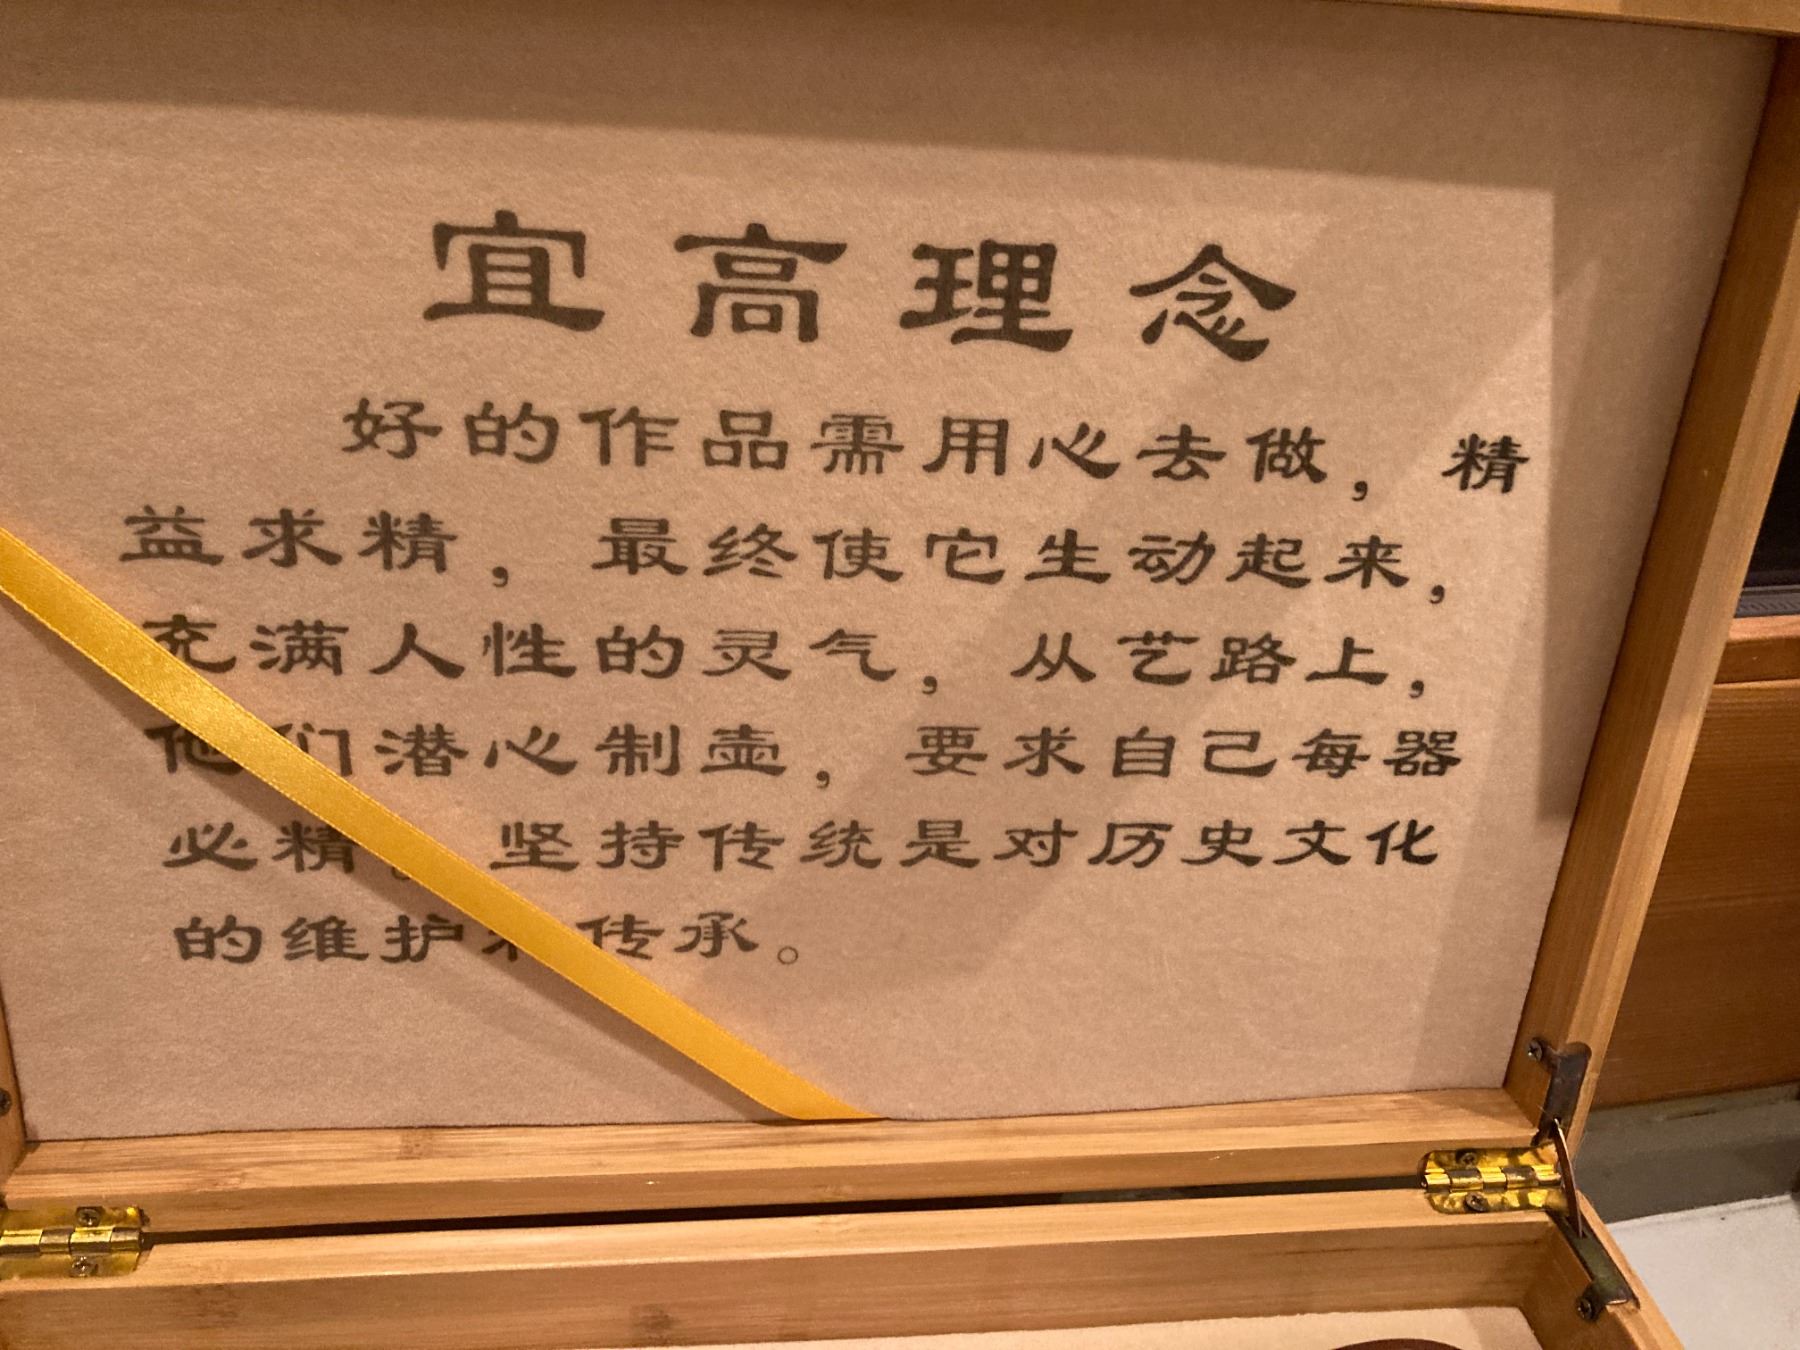 宜高理念
好的作品需用心去做，精
益求精，最终使它生动起来，
充满人性的灵气，从艺路上，
他们潜心制壶，要求自己每器
必精。坚持传统是对历史文化
的维护和传承。